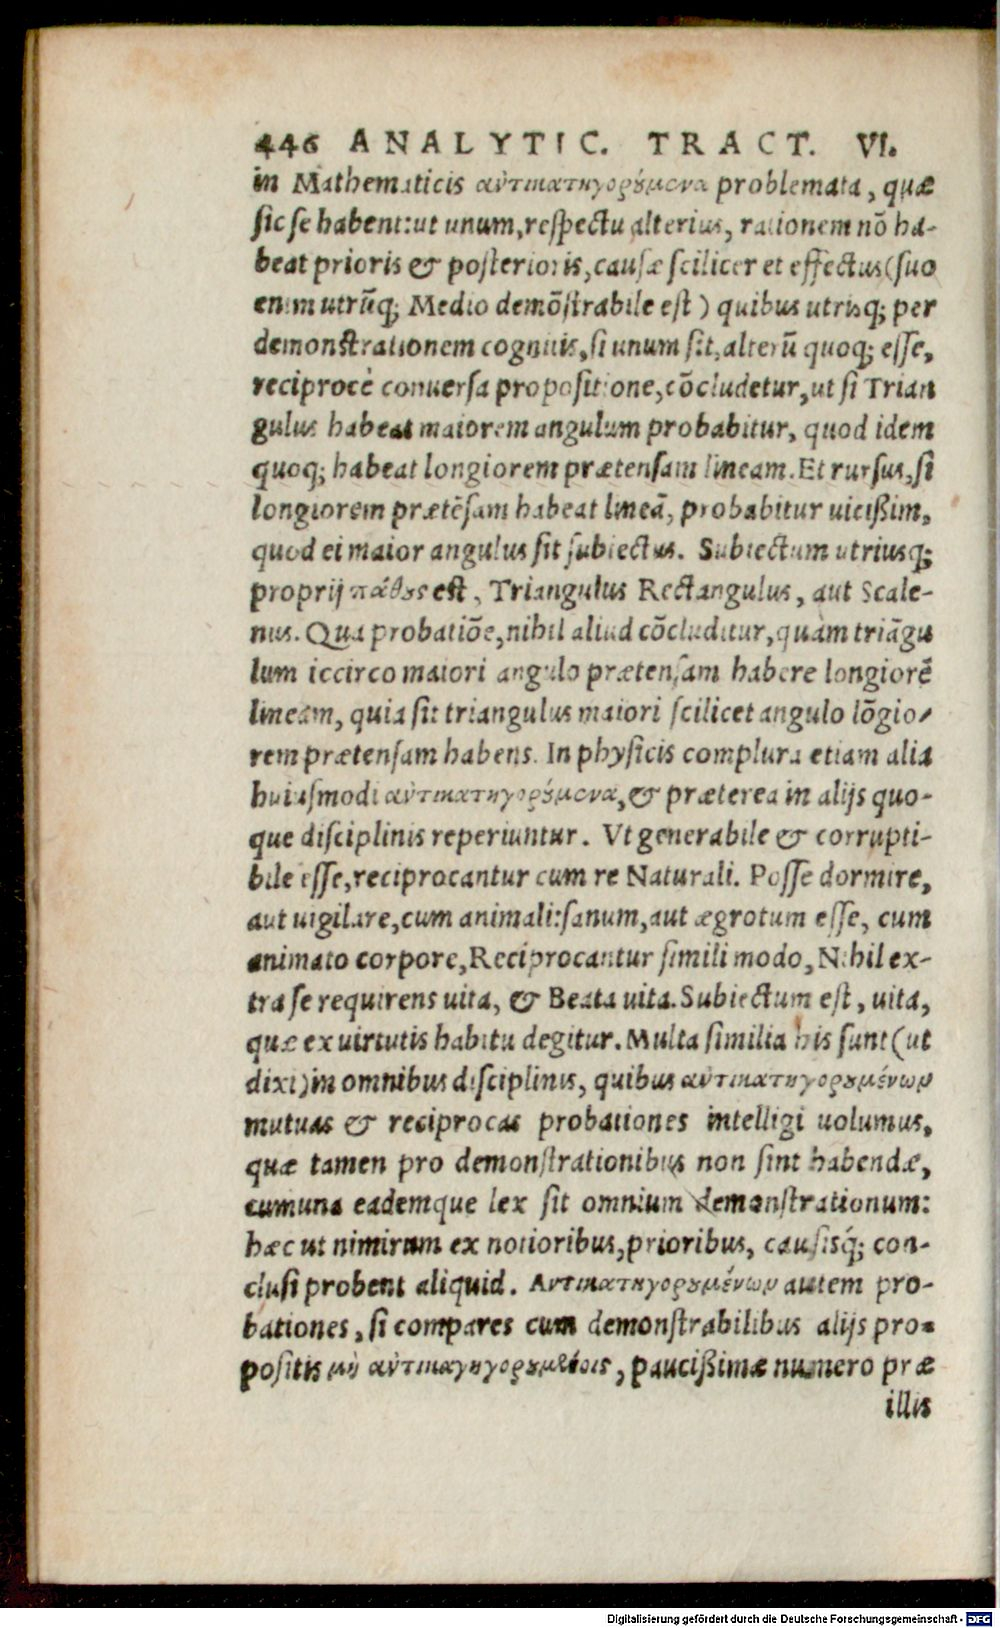 446 ANALYTIC. TRACT. VI.
in Mathematicis αὐτικατηγορούμενα problemata, quæ
sic se habent: ut unum, respectu alterius, rationem nō ha-
beat prioris & posterioris, causæ scilicet et effectus (suo
enim utrūq; Medio demōstrabile est) quibus utrisq; per
demonstrationem cognitis, si unum sit, alterū quoq; esse,
reciprocè conuersa propositione, cōcludetur, ut si Trian
gulus habeat maiorem angulum probabitur, quod idem
quoq; habeat longiorem prætensam lineam. Et rursus, si
longiorem prætēsam habeat lineā, probabitur uicißim,
quod ei maior angulus sit subiectus. Subiectum utriusq;
proprij πάθους est, Triangulus Rectangulus, aut Scale-
nus. Qua probatiōe, nihil aliud cōcluditur, quàm triāgu
lum iccirco maiori angulo prætensam habere longiorē
lineam, quia sit triangulus maiori scilicet angulo lōgio-
rem prætensam habens. In physicis complura etiam alia
huiusmodi αὐτικατηγορούμενα, & præterea in alijs quo-
que disciplinis reperiuntur. Vt generabile & corrupti-
bile esse, reciprocantur cum re Naturali. Posse dormire,
aut uigilare, cum animali: sanum, aut ægrotum esse, cum
animato corpore, Reciprocantur simili modo, Nihil ex-
tra se requirens uita, & Beata uita. Subiectum est, uita,
quæ ex uirtutis habitu degitur. Multa similia his sunt (ut
dixi) in omnibus disciplinis, quibus αὐτικατηγορουμένων
mutuas & reciprocas probationes intelligi uolumus,
quæ tamen pro demonstrationibus non sint habendæ,
cum una eademque lex sit omnium demonstrationum:
hæc ut nimirum ex notioribus, prioribus, causisq́; con-
clusi probent aliquid. Αντικατηγορουμένων autem pro-
bationes, si compares cum demonstrabilibus alijs pro-
positis μὴ αὐτικαγηγορουμένοις, paucißimæ numero præ
illis
Digitalisierung gefördert durch die Deutsche Forschungsgemeinschaft - DFG